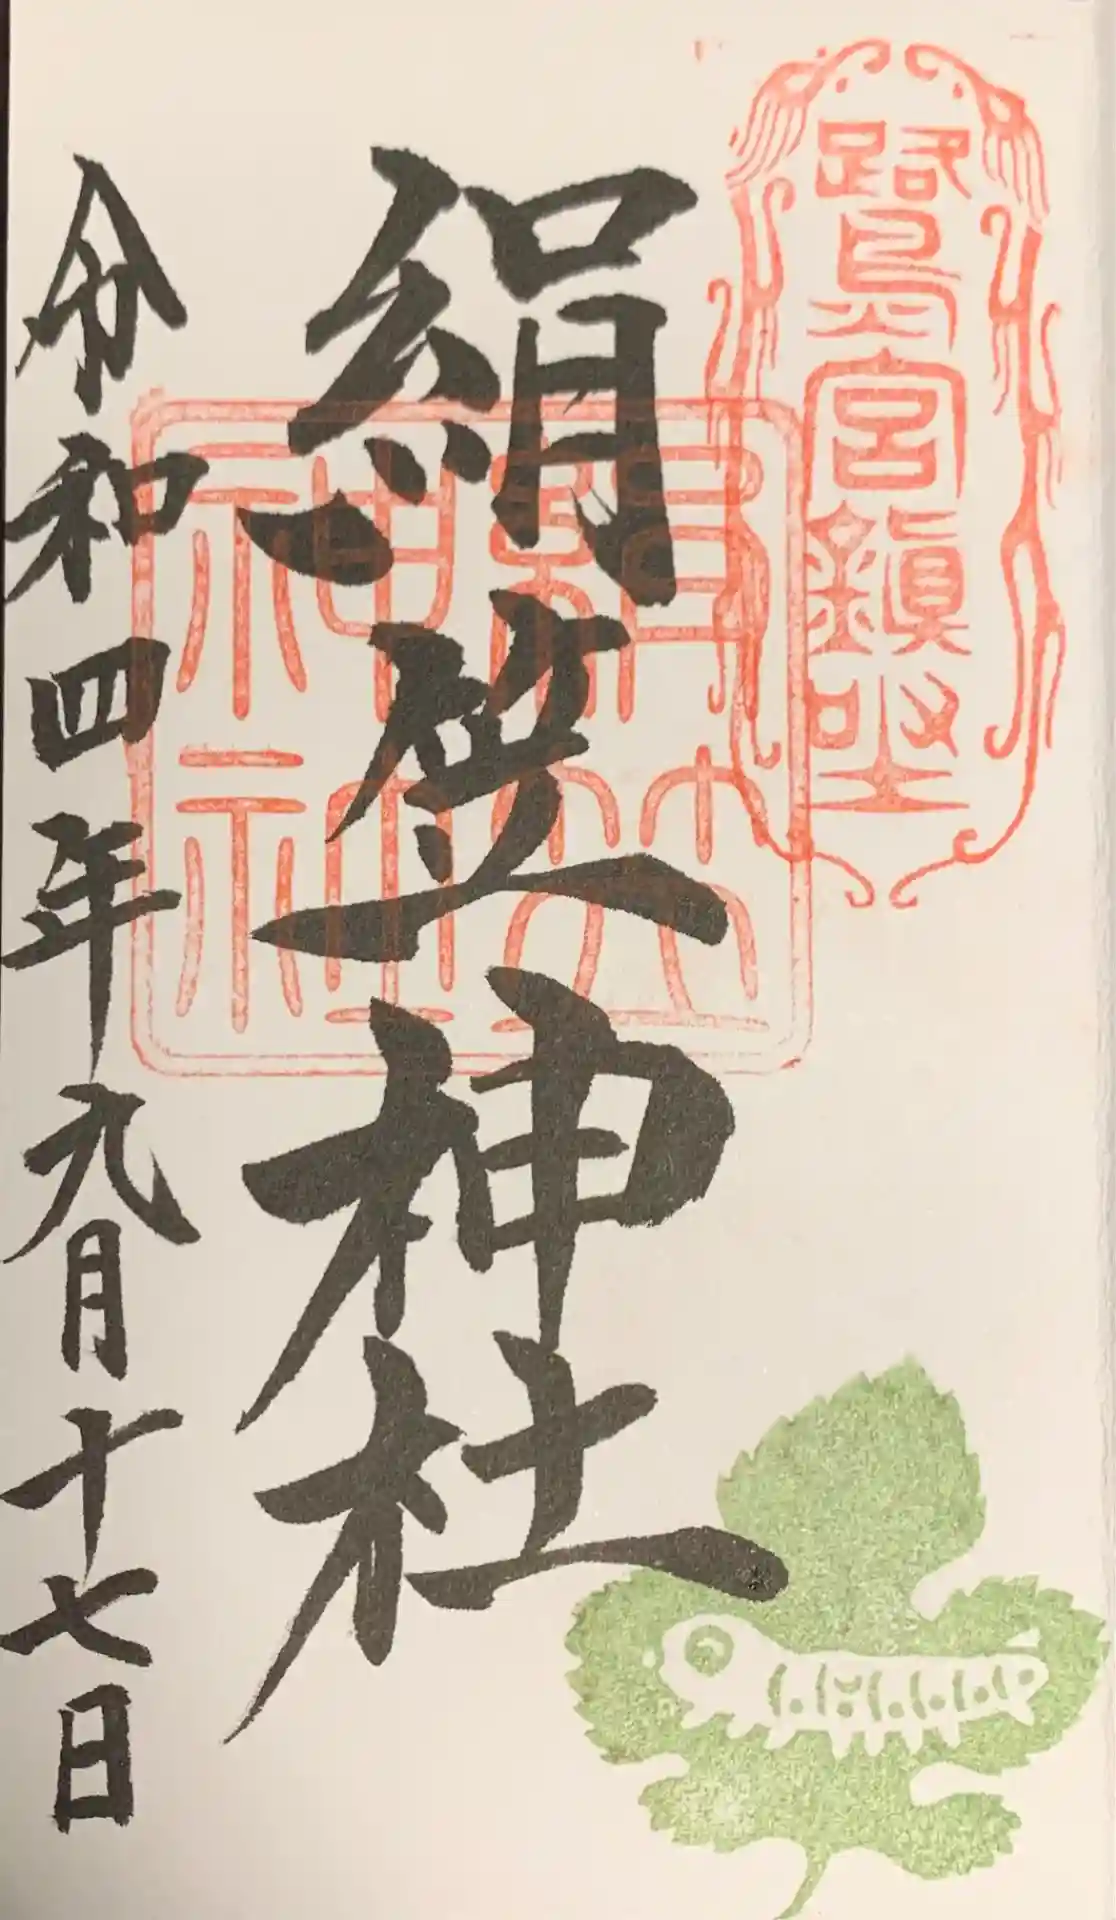 鷺宮鎮座
絹笠神社
絹笠神社
令和四年九月十七日